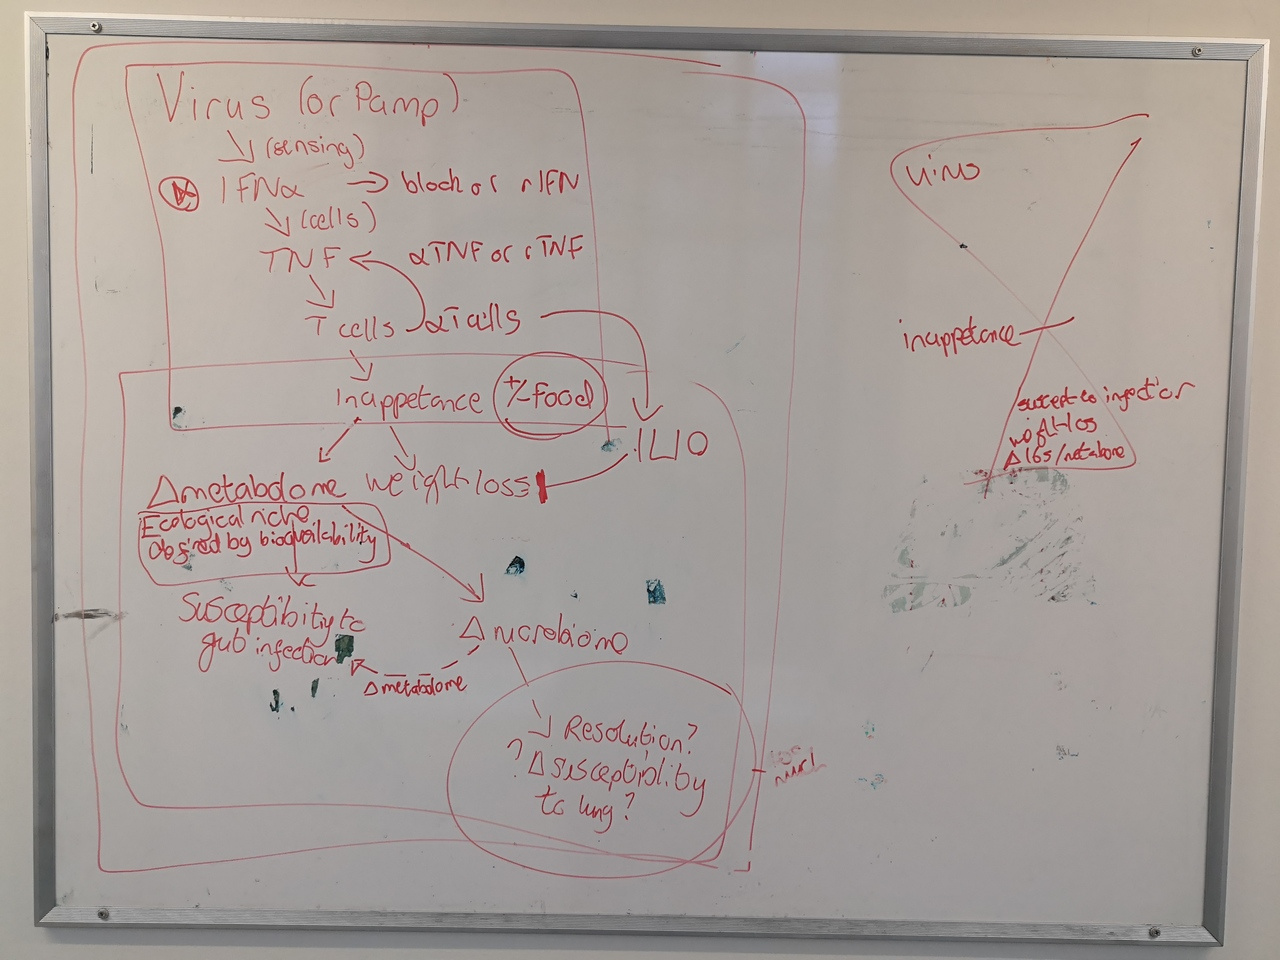 Virus (or Pamp)
(sensing)
IFNα → block or rIFN
(cells)
TNF ← αTNF or rTNF
T cells αT cells
Inappetance +/- food
IL10
Δmetabolome weight loss
Ecological niche
by bioavailability
Susceptibility to
gut infection
Δ microbiome
Δ metabolome
Resolution?
? Δ susceptibility
to lung?
virus
inappetance
suscept to infection
weight loss
Δ 16S/metabone